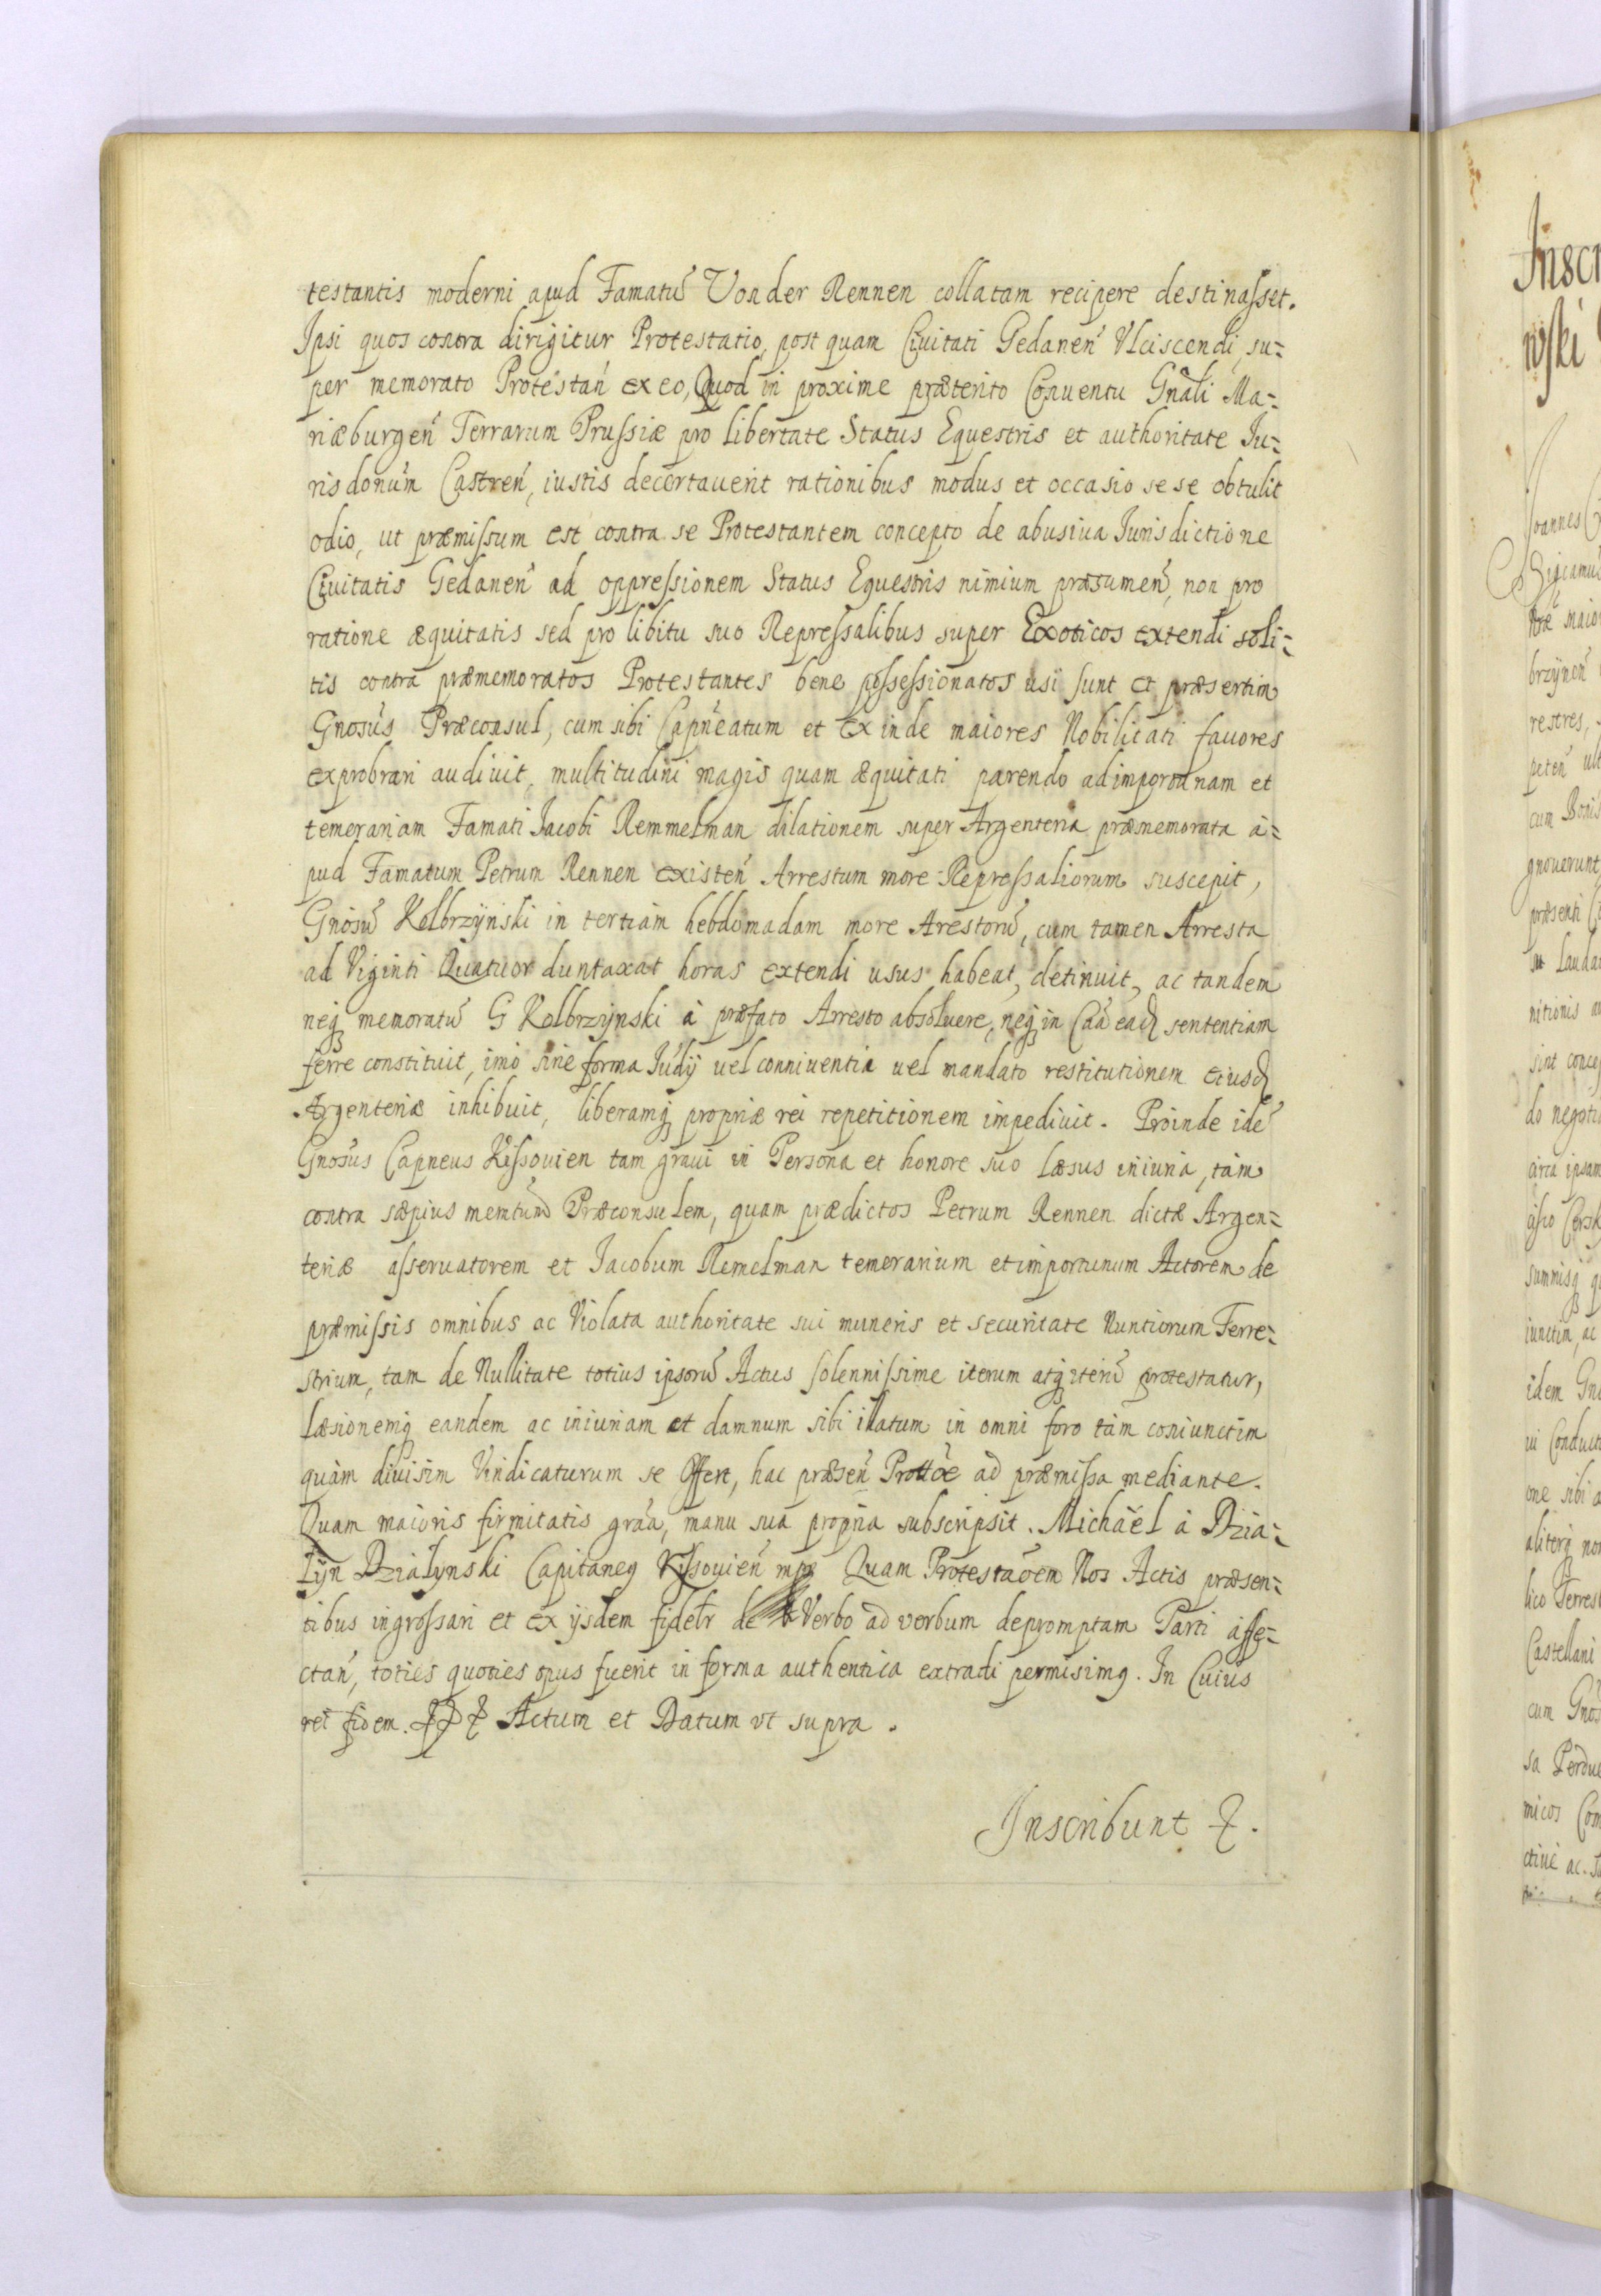 testantis moderni apud Famatũ Vonder Rennen collatam recipere destinaſset.
Ipsi quos contra dirigitur Protestatio, post quam Ciuitati Gedanen̄ Vlciscendi, su=
per memorato Protestan̄ ex eo, Quod in proxime præterito Conuentu Gnāli Ma=
riæburgen̄ Terrarum Pruſsiæ pro libertate Status Equestris et authoritate Iu=
risdonum̄ Castren̄, iustis decertauerit rationibus modus et occasio sese obtulit
odio, ut præmiſsum est contra se Protestantem concepto de abusiua Iurisdictione
Ciuitatis Gedanen̄ ad oppreſsionem Status Equestris nimium præsumen̄, non pro
ratione æquitatis sed pro libitu suo Repreſsalibus super Exoticos extendi soli=
tis contra præmemoratos Protestantes bene poſseſsionatos usi sunt et præsertim
Gnosūs Præconsul, cum sibi Capn̄eatum et ex inde maiores Nobilitati fauores
exprobrari audiuit, multitudini magis quam æquitati parendo ad importunam et
temerariam Famati Iacobi Remmelman dilationem super Argenteria præmemorata à=
pud Famatum Petrum Rennen existen̄ Arrestum more Repreſsaliorum suscepit,
Gnosũ Kolbrzÿnski in tertiam hebdomadam more Arestorũ, cum tamen Arresta
ad Viginti Quatuor duntaxat horas extendi usus habeat, detinuit, ac tandem
neq̨ memoratũ G Kolbrzÿnski à præfato Arresto absoluere, neq̨ in Cāā eadꝫ sententiam
ferre constituit, imò sine forma Iudÿ uel conniuentia uel mandato restitutionem eiusdꝫ
Argenteriæ inhibuit, liberamq̨ propriæ rei repetitionem impediuit. Proinde idē
Gnosūs Capneus Kiſsouien tam graui in Persona et honore suo læsus iniuria, tàm
contra sæpius memtum̄ Præconsulem, quam prædictos Petrum Rennen dictæ Argen=
teriæ aſseruatorem et Iacobum Remelman temerarium et importunum Actorem de
præmiſsis omnibus ac Violata authoritate sui muneris et securitate Nuntiorum Terre=
strium, tam de Nullitate totius ipsorũ Actus solenniſsime iterum atq̨ iterũ protestatur,
Læsionemq̨ eandem ac iniuriam et damnum sibi illatum in omni foro tàm coniunctim
quàm diuisim Vindicaturum se Offert, hac præsen̄ Prottōe ad præmiſsa mediante.
Quam maioris firmitatis grāā, manu sua propria subscripsit. Michaël à Dzia=
lÿn Dzialynski Capitaneꝰ Kiſsouien̄ mpp Quam Protestāōem Nos Actis præsen=
tibus ingroſsari et ex ijsdem fidelr de Verbo ad verbum depromptam Parti affe=
ctan̄, toties quoties opus fuerit in forma authentica extradi permisimꝰ. In Cuius
rei fidem. Actum et Datum vt supra.
Inscribunt